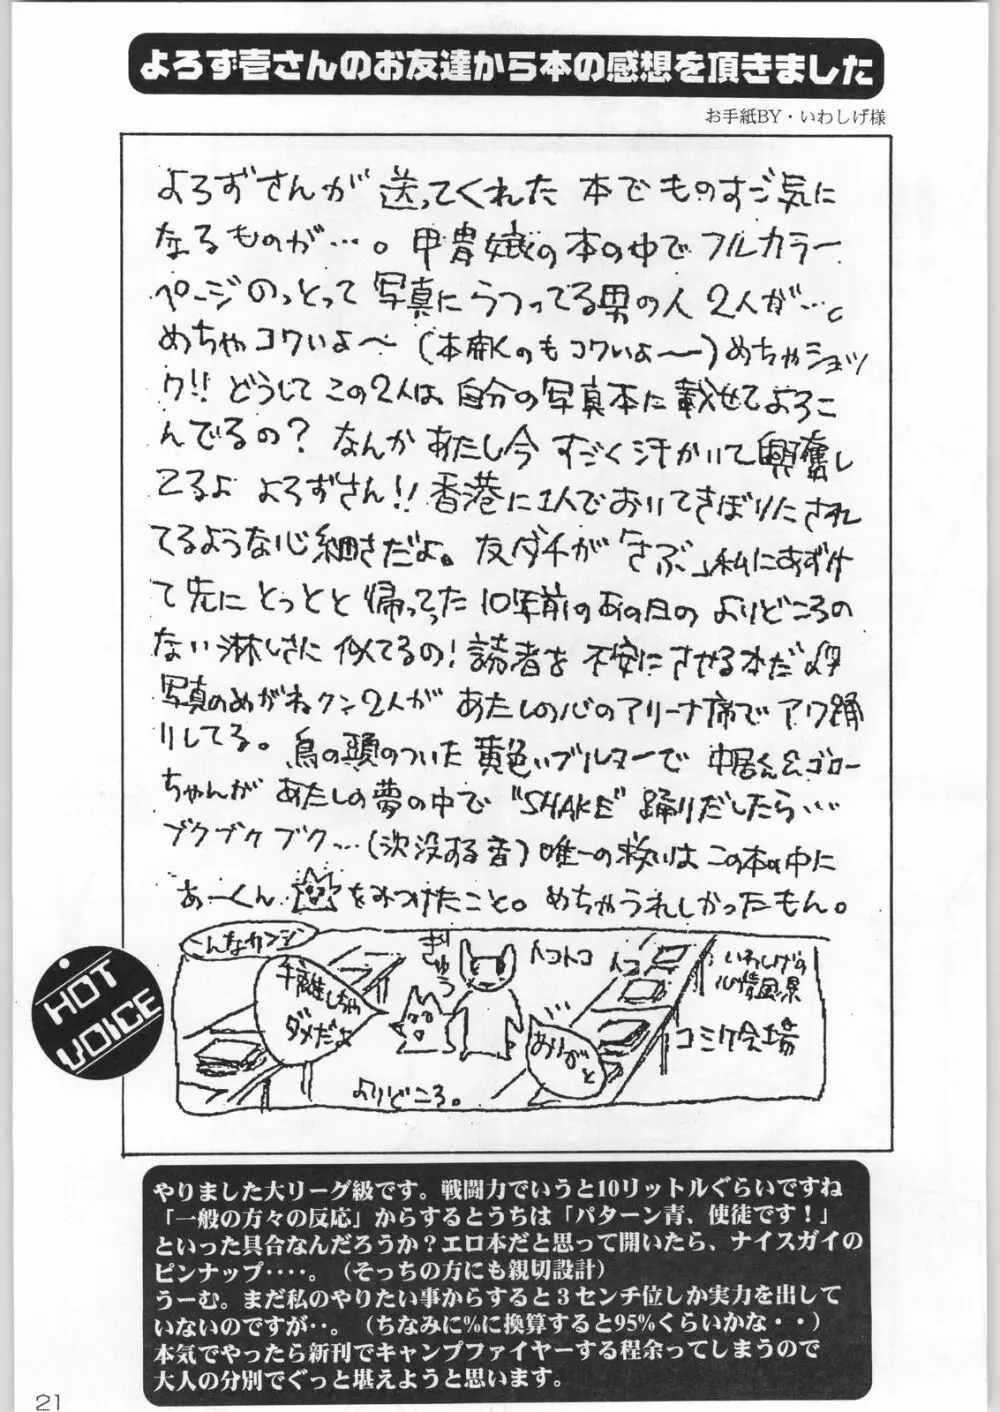 よろず壱さんのお友達から本の感想を頂きました
お手紙BY・いわしげ様
よろずさんが 送ってくれた 本で ものすご気に
なるものが…。甲冑娘の本の中で フルカラー
ページののっとって 写真に うつってる男の人 2人が…。
めちゃコワいよ〜 (本開くのも コワいよ〜) めちゃショッ
ク!! どうして この2人は 自分の写真本に 載せて よろこ
んでるの? なんか あたし今 すごく汗かいて興奮し
てるよ よろずさん!! 香港に1人でおいてきぼりにされ
てるような心細さだよ。友ダチが「さぶ」私にあずけ
て先に とっとと 帰ってった 10年前のあの日の よりどころの
ない淋しさに 似てるの! 読者を 不安にさせる本だよ
写真のめがねクン2人が あたしの心のアリーナ席で アワ踊
りしてる。鳥の頭のついた 黄色いブルマーで 中居くん&ゴロー
ちゃんが あたしの夢の中で "SHAKE" 踊りだしたら…
ブクブク ブク…(沈没する音) 唯一の救いは この本の中に
あーくん をみつけたこと。めちゃうれしかったもん。
こんなカンジ
手離しちゃ
ダメだよ
ぎゅう
トコトコ
トコ
ありがと
いわしげの
心情風景
コミケ会場
よりどころ。
HOT
VOICE
やりました大リーグ級です。戦闘力でいうと10リットルぐらいですね
「一般の方々の反応」からするとうちは「パターン青、使徒です!」
といった具合なんだろうか?エロ本だと思って開いたら、ナイスガイの
ピンナップ‥‥。(そっちの方にも親切設計)
うーむ。まだ私のやりたい事からすると3センチ位しか実力を出して
いないのですが‥。(ちなみに%に換算すると95%くらいかな・・)
本気でやったら新刊でキャンプファイヤーする程余ってしまうので
大人の分別でぐっと堪えようと思います。
21